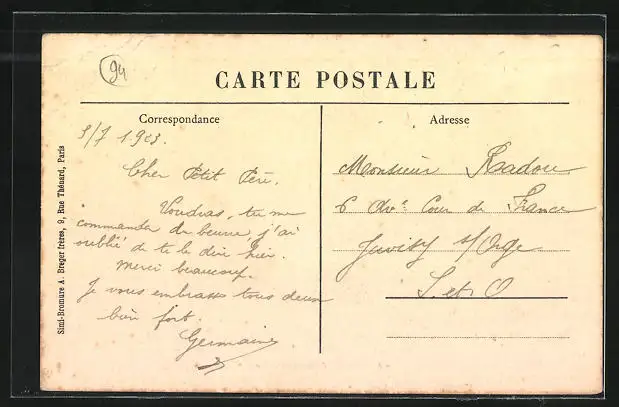 94
CARTE POSTALE
Correspondance
Adresse
Simi-Bromure A. Breger frères, 9, Rue Thénard, Paris
5/7 1903.
Cher Petit Père.
Voudras-tu me
commander du beurre, j'ai
oublié de te le dire hier.
Merci beaucoup.
Je vous embrasse tous deux
bien fort.
Germaine
Monsieur Radou
6 Av. Cour de France
Juvisy s/Orge
S. et O